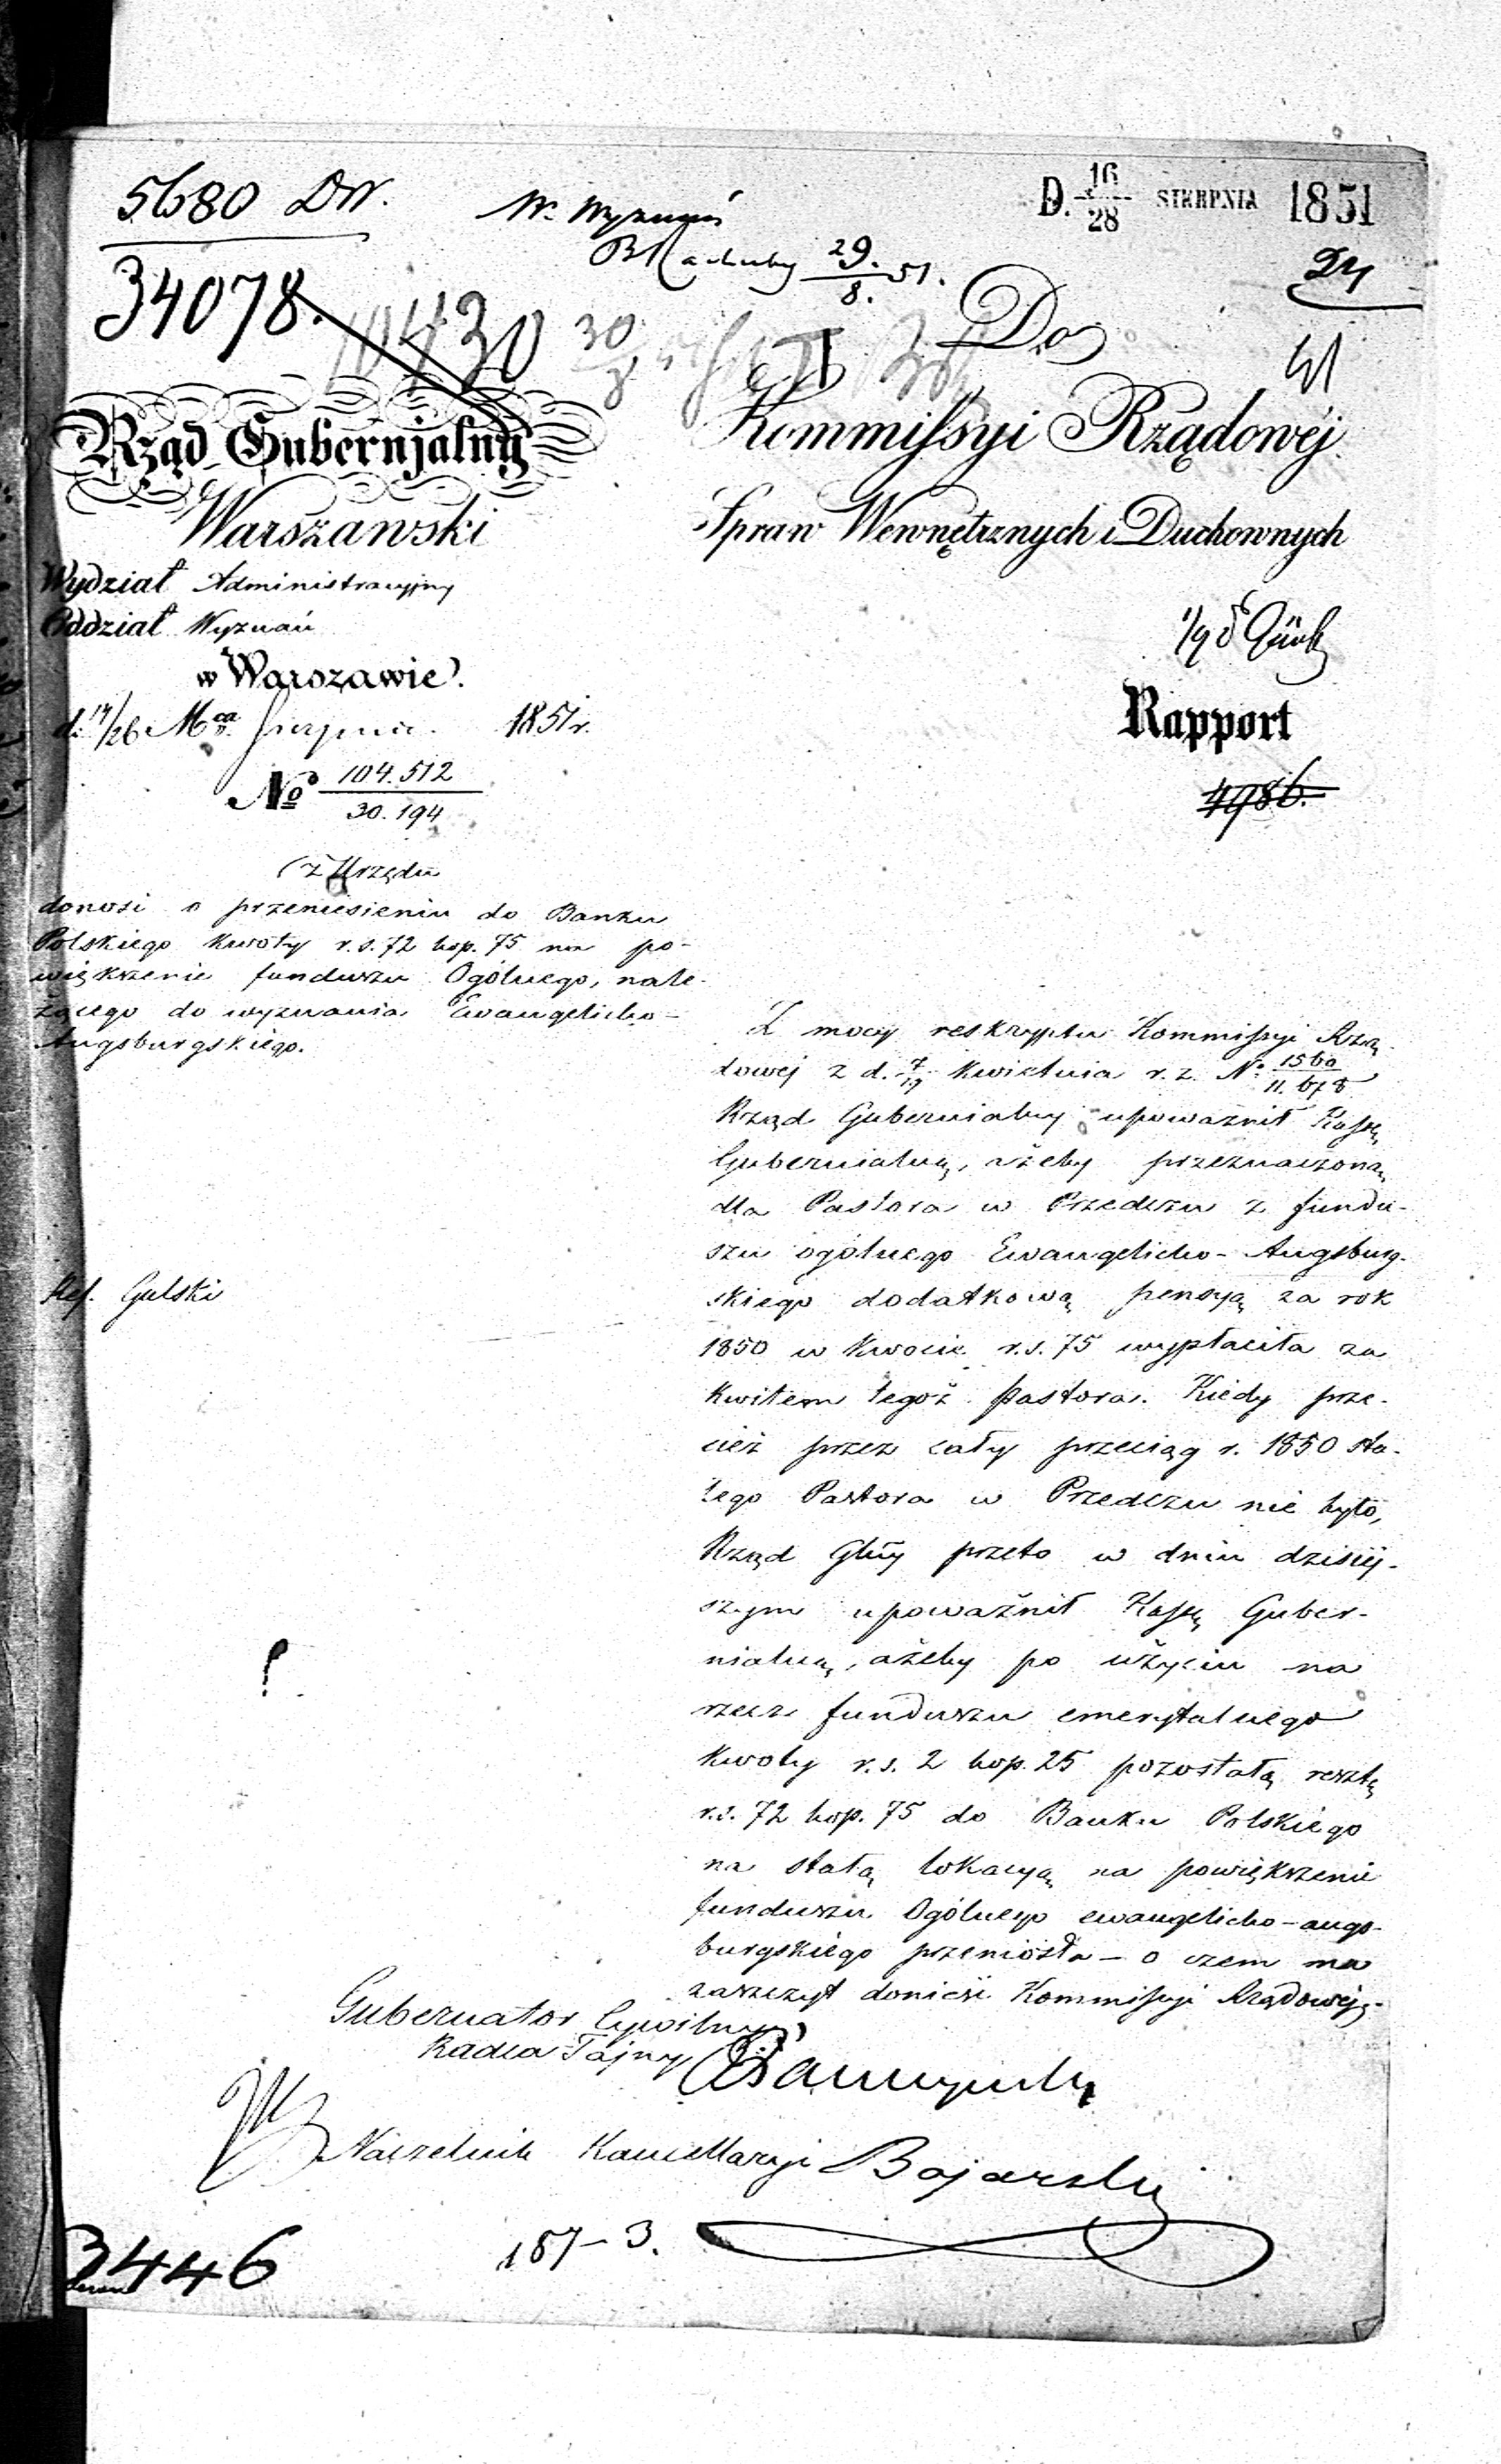 5680 DW.
W. Wyznań
29./8. 51.
D. 16/28 SIERPNIA 1851
24
34078.
10430 30/8
Do
Rząd Gubernjalny
Kommissyi Rządowéj
Warszawski
Spraw Wewnętrznych i Duchownych
Wydział Administracyjny
Oddział Wyznań
1/9
w Warszawie.
d. 14/26 Mca Sierpnia 1851 r.
Rapport
No 104.512/30.194
4986.
Z Urzędu
donosi o przeniesieniu do Banku
Polskiego kwoty r.s. 72 kop. 75 na po-
większenie funduszu Ogólnego, nale-
żącego do wyznania Ewangelicko-
Augsburgskiego.
Ref. Gulski
Z mocy reskryptu Kommissyi Rzą-
dowej z d. 7/19 Kwietnia r. z. No 1560/11.678
Rząd Gubernialny upoważnił Kassę
Gubernialną, ażeby przeznaczoną
dla Pastora w Przedczu z fundu-
szu ogólnego Ewangelicko-Augsburg-
skiego dodatkową pensyą za rok
1850 w kwocie r.s. 75 wypłaciła za
kwitem tegoż pastora. Kiedy prze-
cież przez cały przeciąg r. 1850 sta-
łego Pastora w Przedczu nie było,
Rząd Glny przeto w dniu dzisiej-
szym upoważnił Kassę Guber-
nialną, ażeby po użyciu na
rzecz funduszu emerytalnego
kwoty r.s. 2 kop. 25 pozostałą resztę
r.s. 72 kop. 75 do Banku Polskiego
na stałą lokacyą na powiększenie
funduszu Ogólnego ewangelicko-augs-
burgskiego przeniosła – o czem ma
zaszczyt donieść Kommissyi Rządowej.
Gubernator Cywilny
Radca Tajny
Naczelnik Kancellaryi Bojarski
187-3.
3446